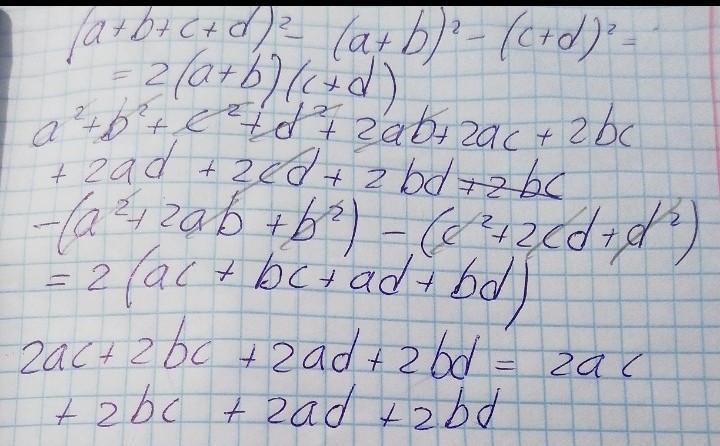 (a+b+c+d)² - (a+b)² - (c+d)² =
= 2(a+b)(c+d)
a²+b²+c²+d²+2ab+2ac+2bc
+2ad+2cd+2bd+2bc
-(a²+2ab+b²)-(c²+2cd+d²)
=2(ac+bc+ad+bd)
2ac+2bc+2ad+2bd=2ac
+2bc+2ad+2bd